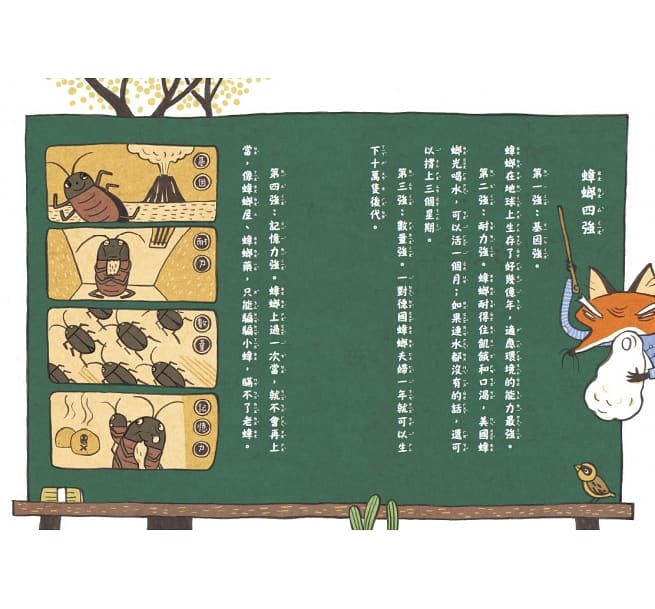 蟑螂四強
第一強：基因強。
蟑螂在地球上生存了好幾億年，適應環境的能力最強。
第二強：耐力強。蟑螂耐得住飢餓和口渴，美國蟑
螂光喝水，可以活一個月；如果連水都沒有的話，還可
以撐上三個星期。
第三強：數量強。一對德國蟑螂夫婦一年就可以生
下十萬隻後代。
第四強：記憶力強。蟑螂上過一次當，就不會再上
當，像蟑螂屋、蟑螂藥，只能騙騙小蟑，瞞不了老蟑。
基因
耐力
數量
記憶力